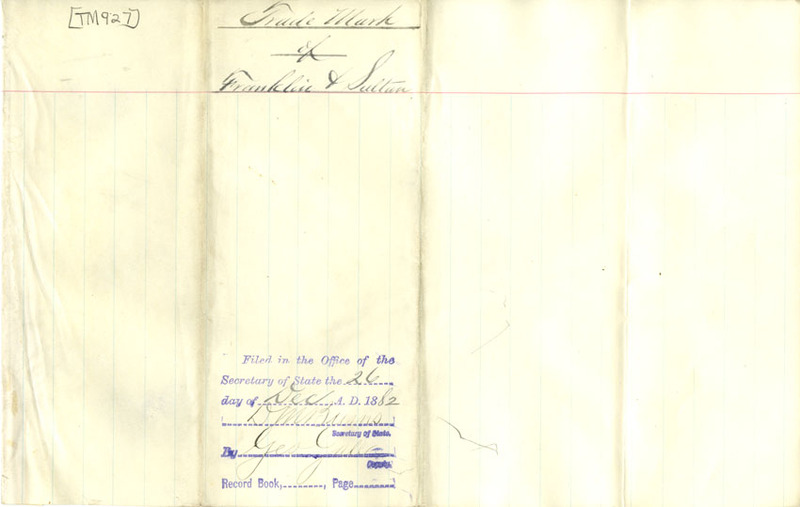 [TM927]
Trade Mark
of
Franklin & Sutton
Filed in the Office of the
Secretary of State the 26
day of Dec A. D. 1882
D M Burns
Secretary of State.
By Geo
Deputy.
Record Book, , Page